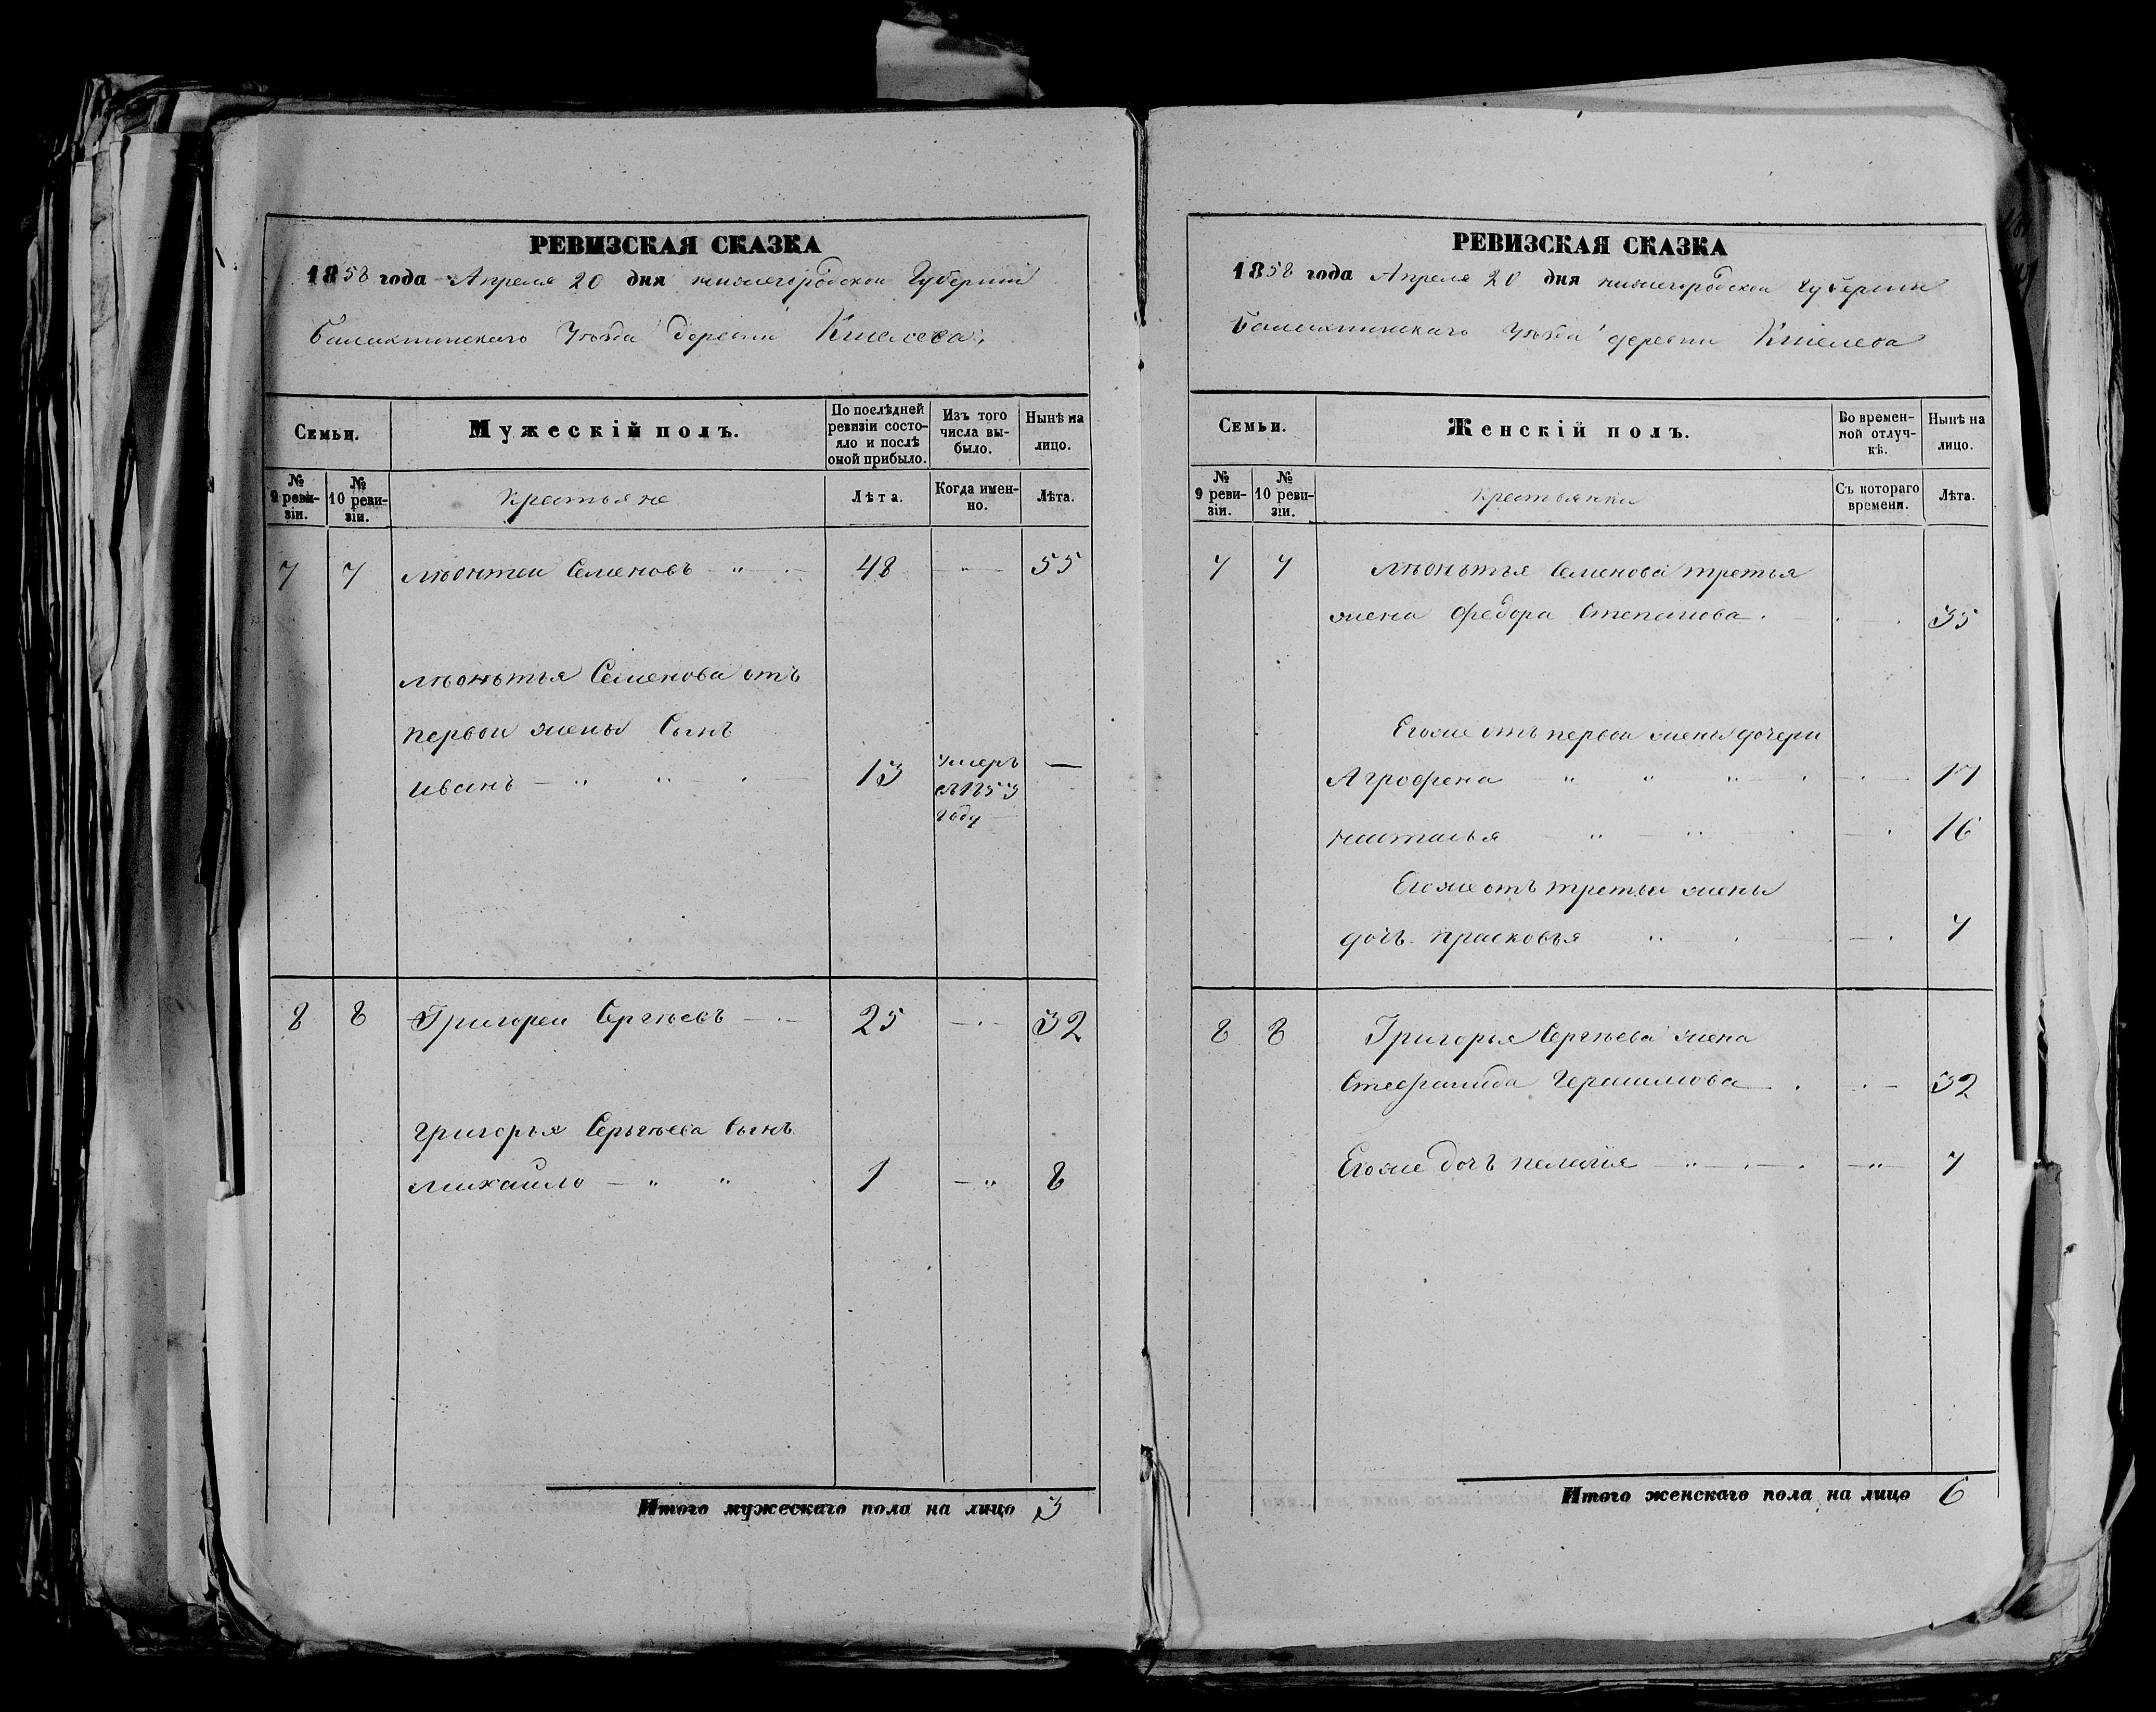 РЕВИЗСКАЯ СКАЗКА
1858 года Апреля 20 дня нижегородской Губернии
Балахнинскаго Уѣзда деревни Кишелева
Семьи.
Мужескій полъ.
По послѣдней ревизіи состояло и послѣ оной прибыло.
Изъ того числа выбыло.
Нынѣ на лицо.
№ 9 ревизіи.
№ 10 ревизіи.
Крестьяне
Лѣта.
Когда именно.
Лѣта.
7 7 Лѣонтеи Семеновъ 48 55
Лѣоньтья Семенова отъ
первои жены Сынъ
Иванъ 13 умеръ в 1853 году —
8 8 Григореи Сергѣевъ 25 32
Григорья Серьгѣева Сынъ
Михаило 1 8
Итого мужескаго пола на лицо 3
РЕВИЗСКАЯ СКАЗКА
1858 года Апреля 20 дня нижегородской Губернии
Балахнинскаго Уѣзда деревни Кишелева
Семьи.
Женскій полъ.
Во временной отлучкѣ.
Нынѣ на лицо.
№ 9 ревизіи.
№ 10 ревизіи.
Крестьянки
Съ котораго времени.
Лѣта.
7 7 Лѣоньтья Семенова третья
жена Федора Степанова 35
Егоже отъ первои жены дочери
Агрофена 17
Наталья 16
Егоже отъ третьи жены
дочь Прасковья 7
8 8 Григорья Сергѣева жена
Стефанида Герасимова 32
Егоже дочь Пелагия 7
Итого женскаго пола на лицо 6